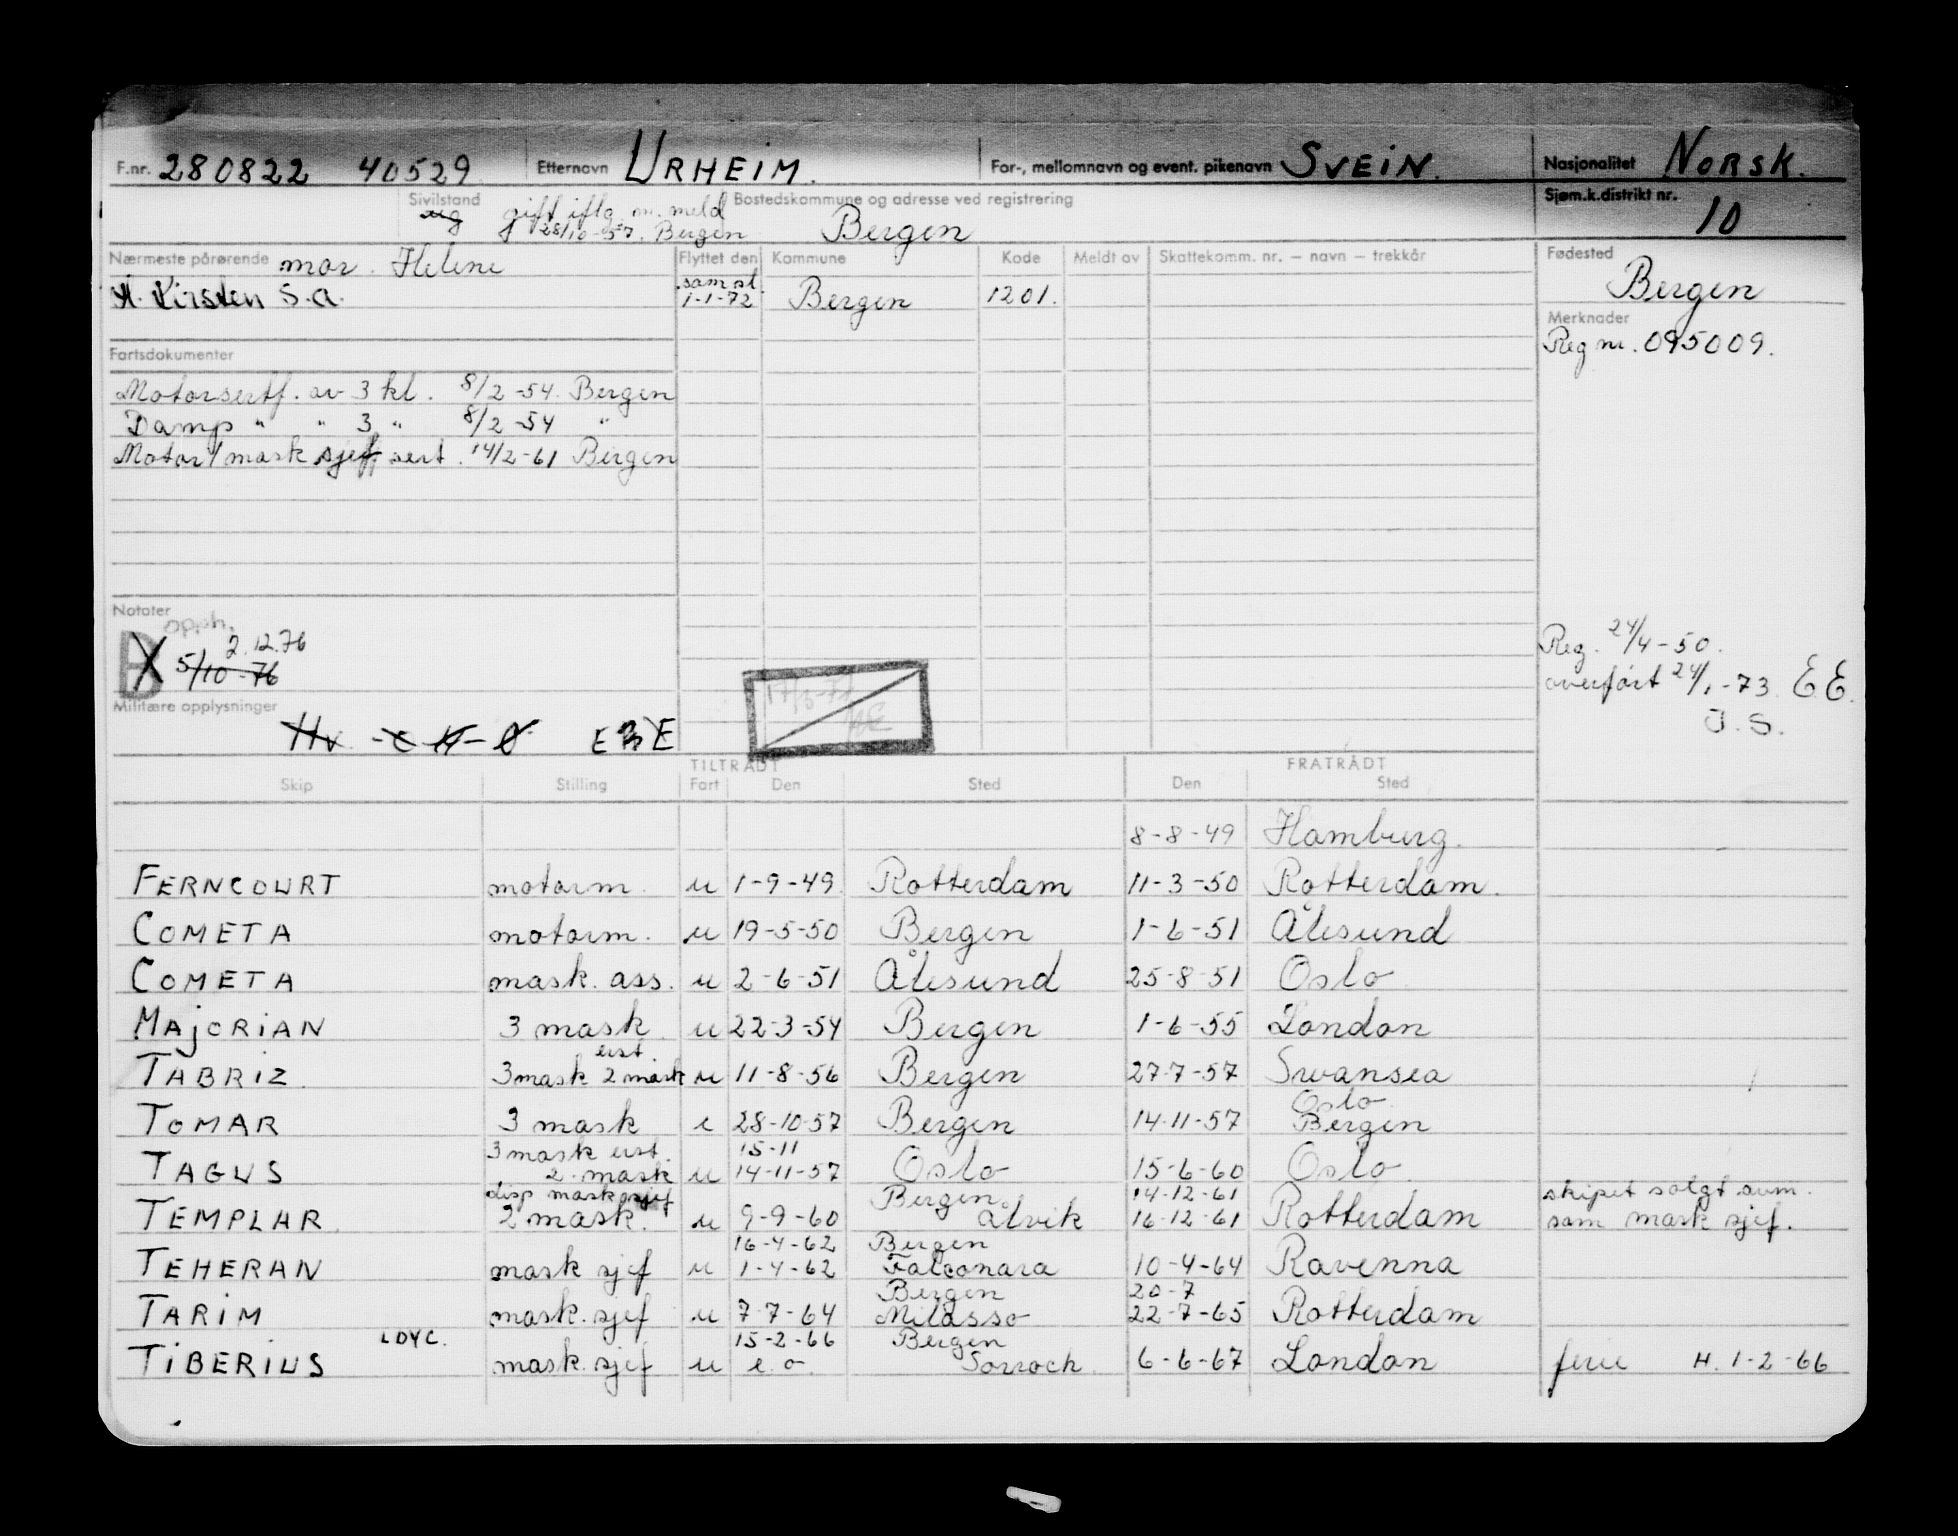 F.nr. 280822 40529 Etternavn URHEIM. For-, mellomnavn og event. pikenavn SVEIN. Nasjonalitet NORSK.
Sivilstand ug gift iflg. m. meld 28/10-57. Bergen Bostedskommune og adresse ved registrering Bergen Sjøm.k.distrikt nr. 10
Nærmeste pårørende mor. Helene
H. Kirsten S.A.
Flyttet den Kommune Kode Meldt av Skattekomm. nr. – navn – trekkår
samst. 1-1-72 Bergen 1201.
Fødested
Bergen
Merknader
Reg nr. 095009.
Fartsdokumenter
Motorsertf. av 3 kl. 8/2-54. Bergen
Damp " " 3 " 8/2-54 "
Motor/mask sjef sert. 14/2-61 Bergen
Notater
B opph. 2.12.76
5/10-76
Reg. 24/4-50.
overført 24/1-73 E.E.
J.S.
Militære opplysninger
Hv -c H-0 E3E
TILTRÅDT FRATRÅDT
Skip Stilling Fart Den Sted Den Sted
8-8-49 Hamburg.
FERNCOURT motorm. u 1-9-49. Rotterdam 11-3-50 Rotterdam.
COMETA motorm. u 19-5-50 Bergen 1-6-51 Ålesund
COMETA mask. ass. u 2-6-51 Ålesund 25-8-51 Oslo
MAJORIAN 3 mask u 22-3-54 Bergen 1-6-55 London
eist.
TABRIZ 3 mask 2 mask u 11-8-56 Bergen 27-7-57 Swansea
Oslo
TOMAR 3 mask e 28-10-57 Bergen 14-11-57 Bergen
3 mask eist. 15-11
TAGUS 2 mask u 14-11-57 Oslo 15-6-60 Oslo
disp mask sjef Bergen 14-12-61 skipet solgt avm.
TEMPLAR 2 mask. u 9-9-60 Ålvik 16-12-61 Rotterdam som mask sjef.
16-4-62 Bergen
TEHERAN mask sjef u 1-4-62 Falconara 10-4-64 Ravenna
Bergen 20-7
TARIM mask. sjef u 7-7-64 Milasso 22-7-65 Rotterdam
LDYC. 15-2-66 Bergen
TIBERIUS mask. sjef u e.o. Sorroch 6-6-67 London ferie H. 1-2-66